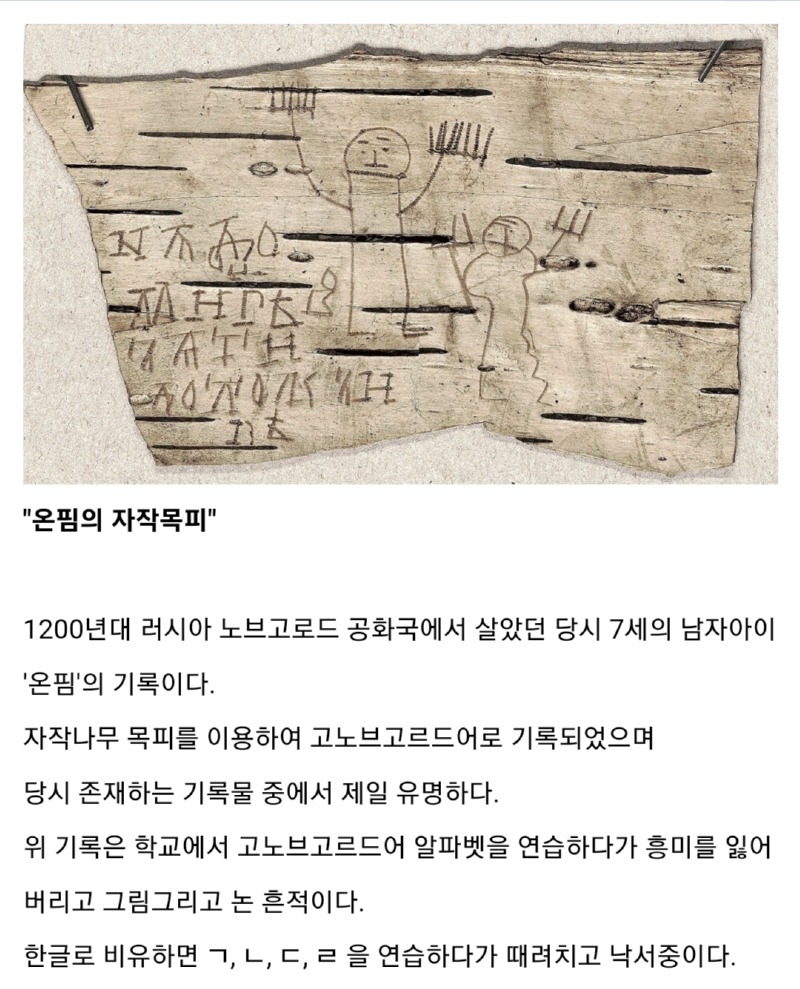 "온핌의 자작목피"
1200년대 러시아 노브고로드 공화국에서 살았던 당시 7세의 남자아이
'온핌'의 기록이다.
자작나무 목피를 이용하여 고노브고르드어로 기록되었으며
당시 존재하는 기록물 중에서 제일 유명하다.
위 기록은 학교에서 고노브고르드어 알파벳을 연습하다가 흥미를 잃어
버리고 그림그리고 논 흔적이다.
한글로 비유하면 ㄱ, ㄴ, ㄷ, ㄹ 을 연습하다가 때려치고 낙서중이다.